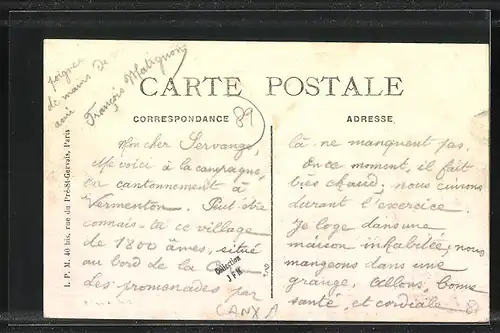 poignée
de mains de
ami
François Matignon
CARTE POSTALE
CORRESPONDANCE
89
ADRESSE
Mon cher Servange,
Me voici à la campagne,
en cantonnement à
Vermenton. Peut-être
connais-tu ce village
de 1800 âmes, situé
au bord de la
des promenades par
là ne manquent pas.
En ce moment, il fait
très chaud; nous
durant l'exercice.
Je loge dans une
maison inhabitée; nous
mangeons dans une
grange. Allons, bonne
santé, et cordiale
Collection
J F K
CANXA
I. P. M. 40 bis, rue du Pré-St-Gervais, Paris